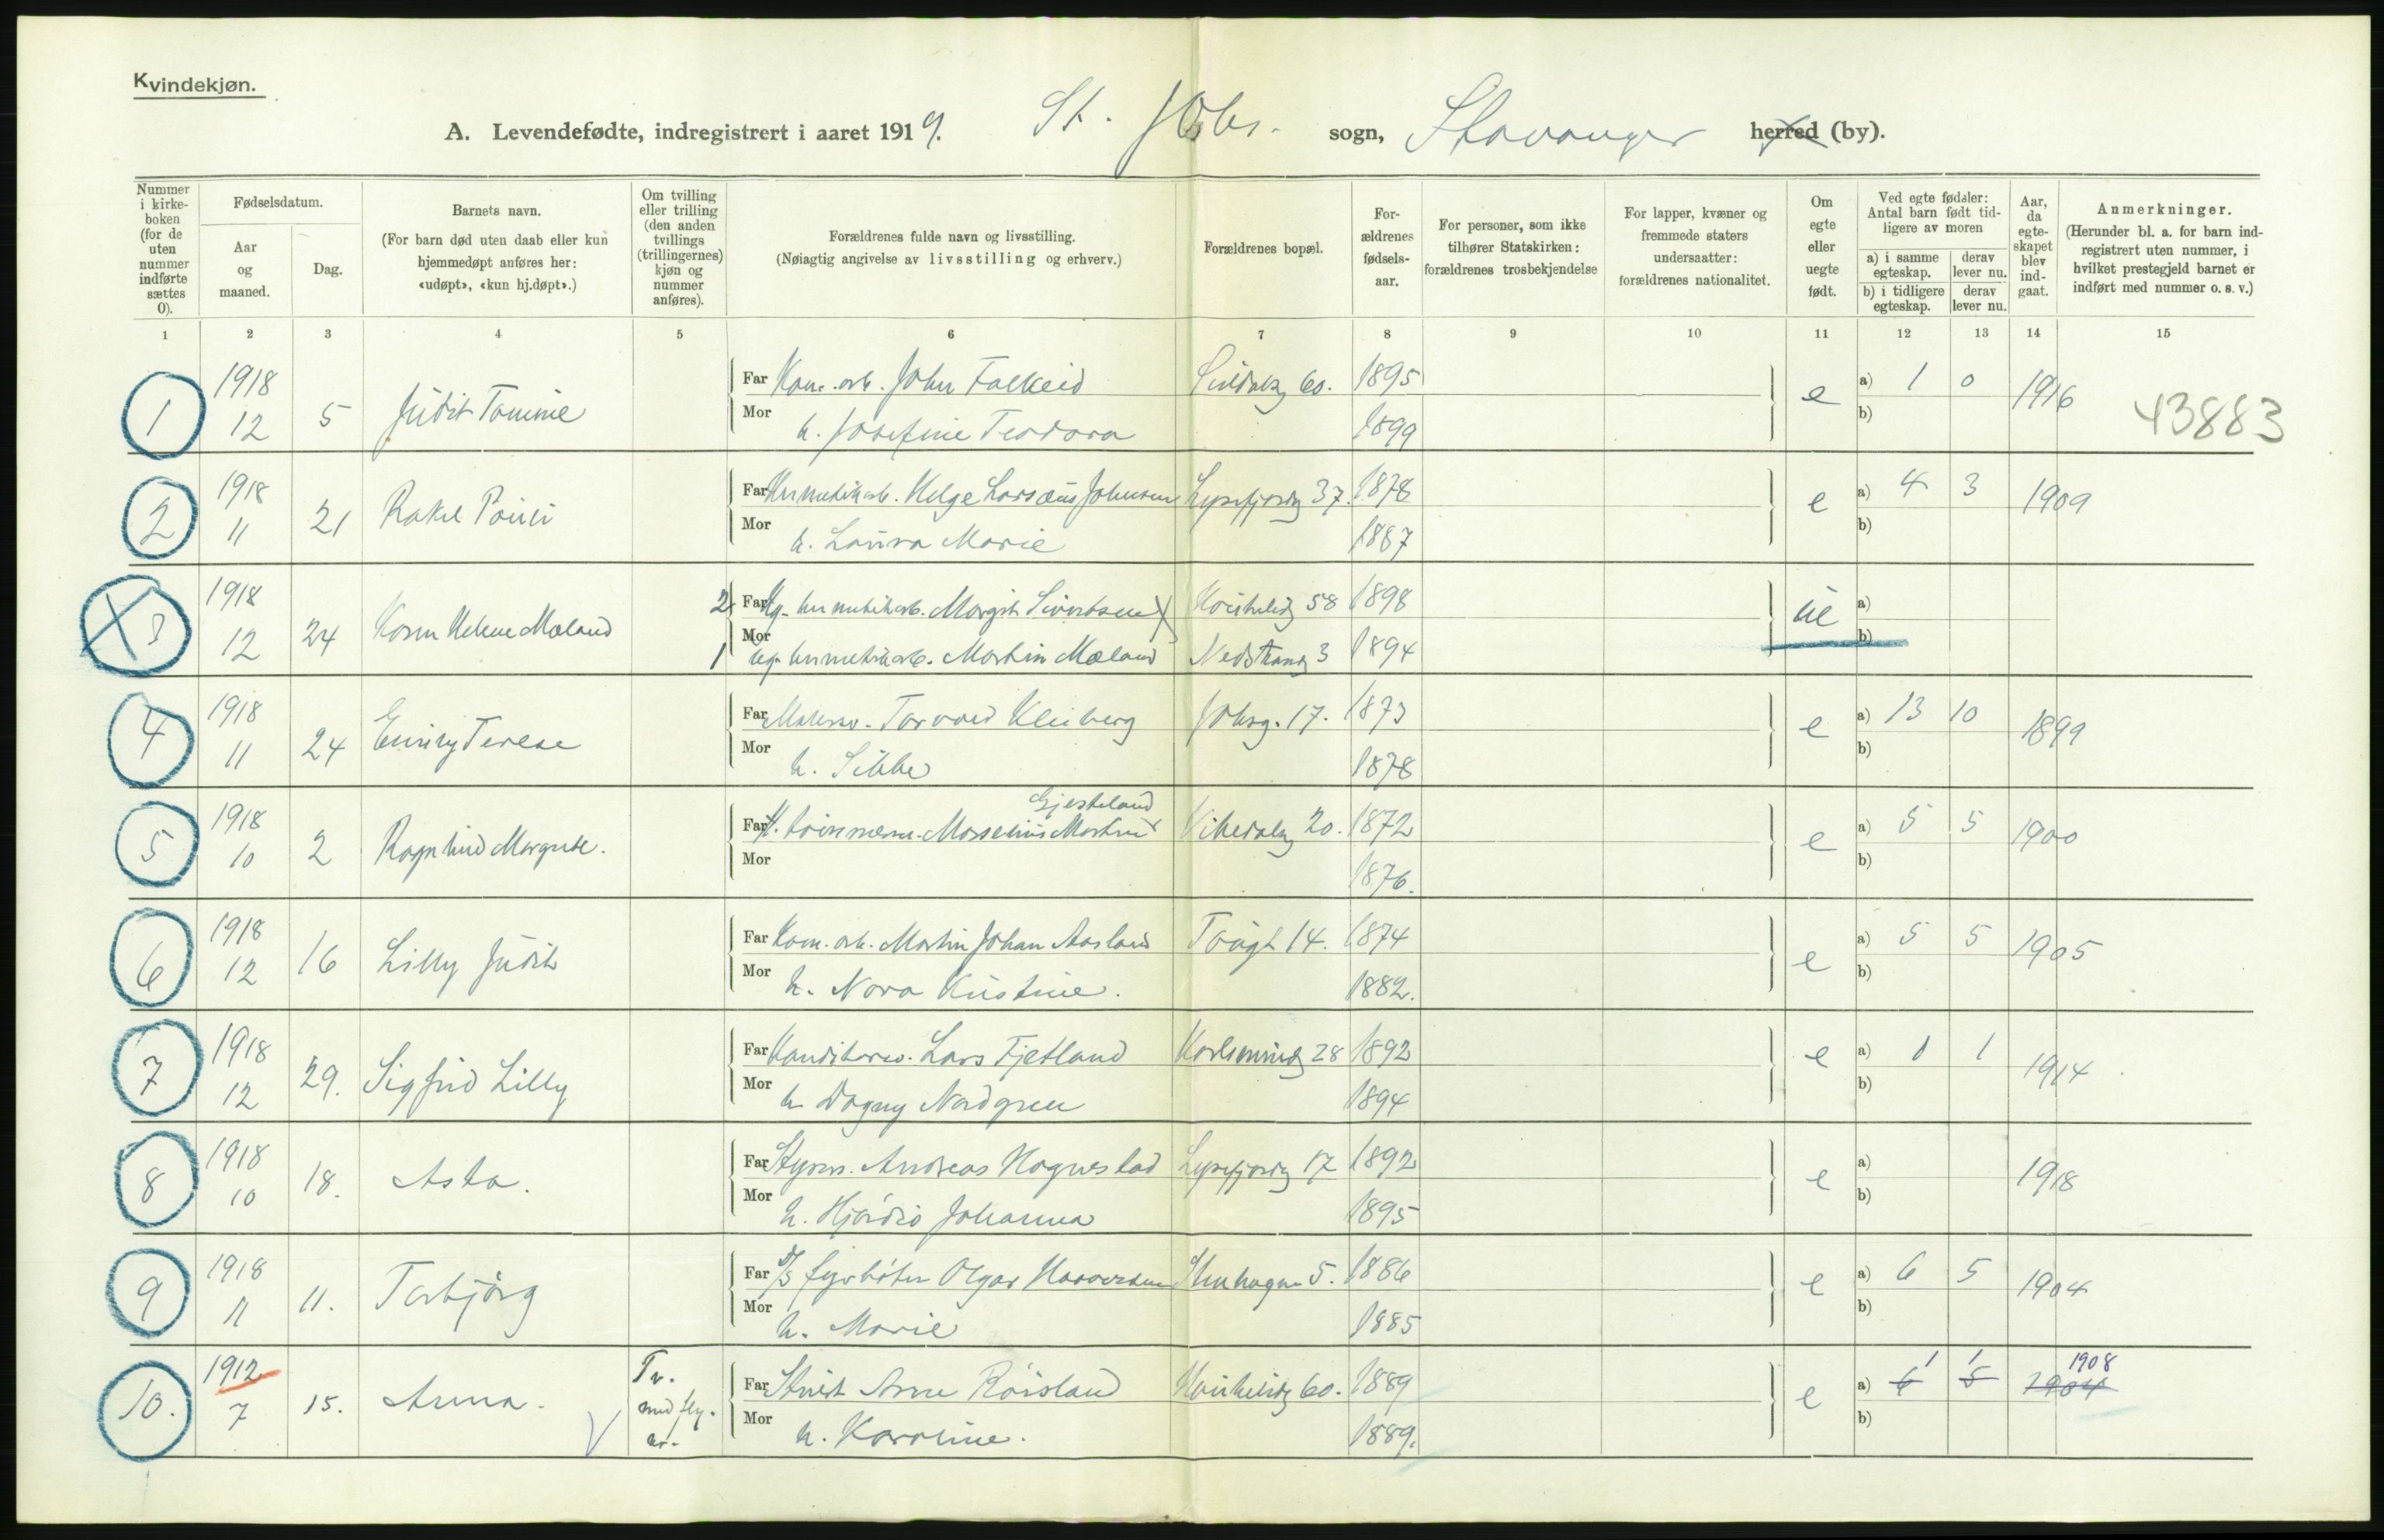 Kvindekjøn.
A. Levendefødte, indregistrert i aaret 1919. St. Johs. sogn, Stavanger herred (by).
Nummer i kirke-boken (for de uten nummer indførte sættes 0).
Fødselsdatum.
Aar og maaned.
Dag.
Barnets navn.
(For barn død uten daab eller kun hjemmedøpt anføres her: «udøpt», «kun hj.døpt».)
Om tvilling eller trilling (den anden tvillings (trillingernes) kjøn og nummer anføres).
Forældrenes fulde navn og livsstilling.
(Nøiagtig angivelse av livsstilling og erhverv.)
Forældrenes bopæl.
For-ældrenes fødsels-aar.
For personer, som ikke tilhører Statskirken: forældrenes trosbekjendelse
For lapper, kvæner og fremmede staters undersaatter: forældrenes nationalitet.
Om egte eller uegte født.
Ved egte fødsler: Antal barn født tid-ligere av moren
a) i samme egteskap. derav lever nu.
b) i tidligere egteskap. derav lever nu.
Aar, da egte-skapet blev ind-gaat.
Anmerkninger.
(Herunder bl. a. for barn ind-registrert uten nummer, i hvilket prestegjeld barnet er indført med nummer o. s. v.)
1 2 3 4 5 6 7 8 9 10 11 12 13 14 15
1 1918 12 5 Judit Tomine Far John Falkeid 60. 1895 e a) 1 0 1916 43883
Mor h. Josefine Teodora 1899 b)
2 1918 11 21 Rakel Far Hermetikarb. Helge Larsæus Johnsen Lysefjordg 37. 1878 e a) 4 3 1909
Mor h. Laura Marie 1887 b)
3 1918 12 24 Karen Helene Mæland 2 Far Ug. hermetikarb. Margit Sivertsen Haukeligt 58 1898 ue a)
1 Mor Ug. hermetikarb. Martin Mæland Nedstrandg 3 1894 b)
4 1918 11 24 Terese Far Torvald Kleiberg Johsg. 17. 1873 e a) 13 10 1899
Mor h. 1878 b)
5 1918 10 2 Ragnhild Margrete. Gjesteland
Far Martin Vikedalsg 20. 1872 e a) 5 5 1900
Mor 1876. b)
6 1918 12 16 Lilly Judit Far Martin Johan Aasland 14. 1874 e a) 5 5 1905
Mor h. Nora Kristine. 1882. b)
7 1918 12 29. Sigfrid Lilly Far Lars Fjetland Karlsminneg 28 1892 e a) 1 1 1914
Mor h. Dagny Nordgren 1894 b)
8 1918 10 18. Asta. Far Styrm. Andreas Hognestad Lysefjordg 17 1892 e a) 1918
Mor h. Hjørdis Johanna 1895 b)
9 1918 11 11. Torbjørg Far D/S fyrbøter Olgar Haaversen 5. 1886 e a) 6 5 1904
Mor h. Marie 1885 b)
10. 1912 7 15. Anna. Tv. med Far Arne Røisland Haukeligt 60. 1889 e a) 6 1 5 1 1904 1908
Mor h. Karoline. 1889. b)